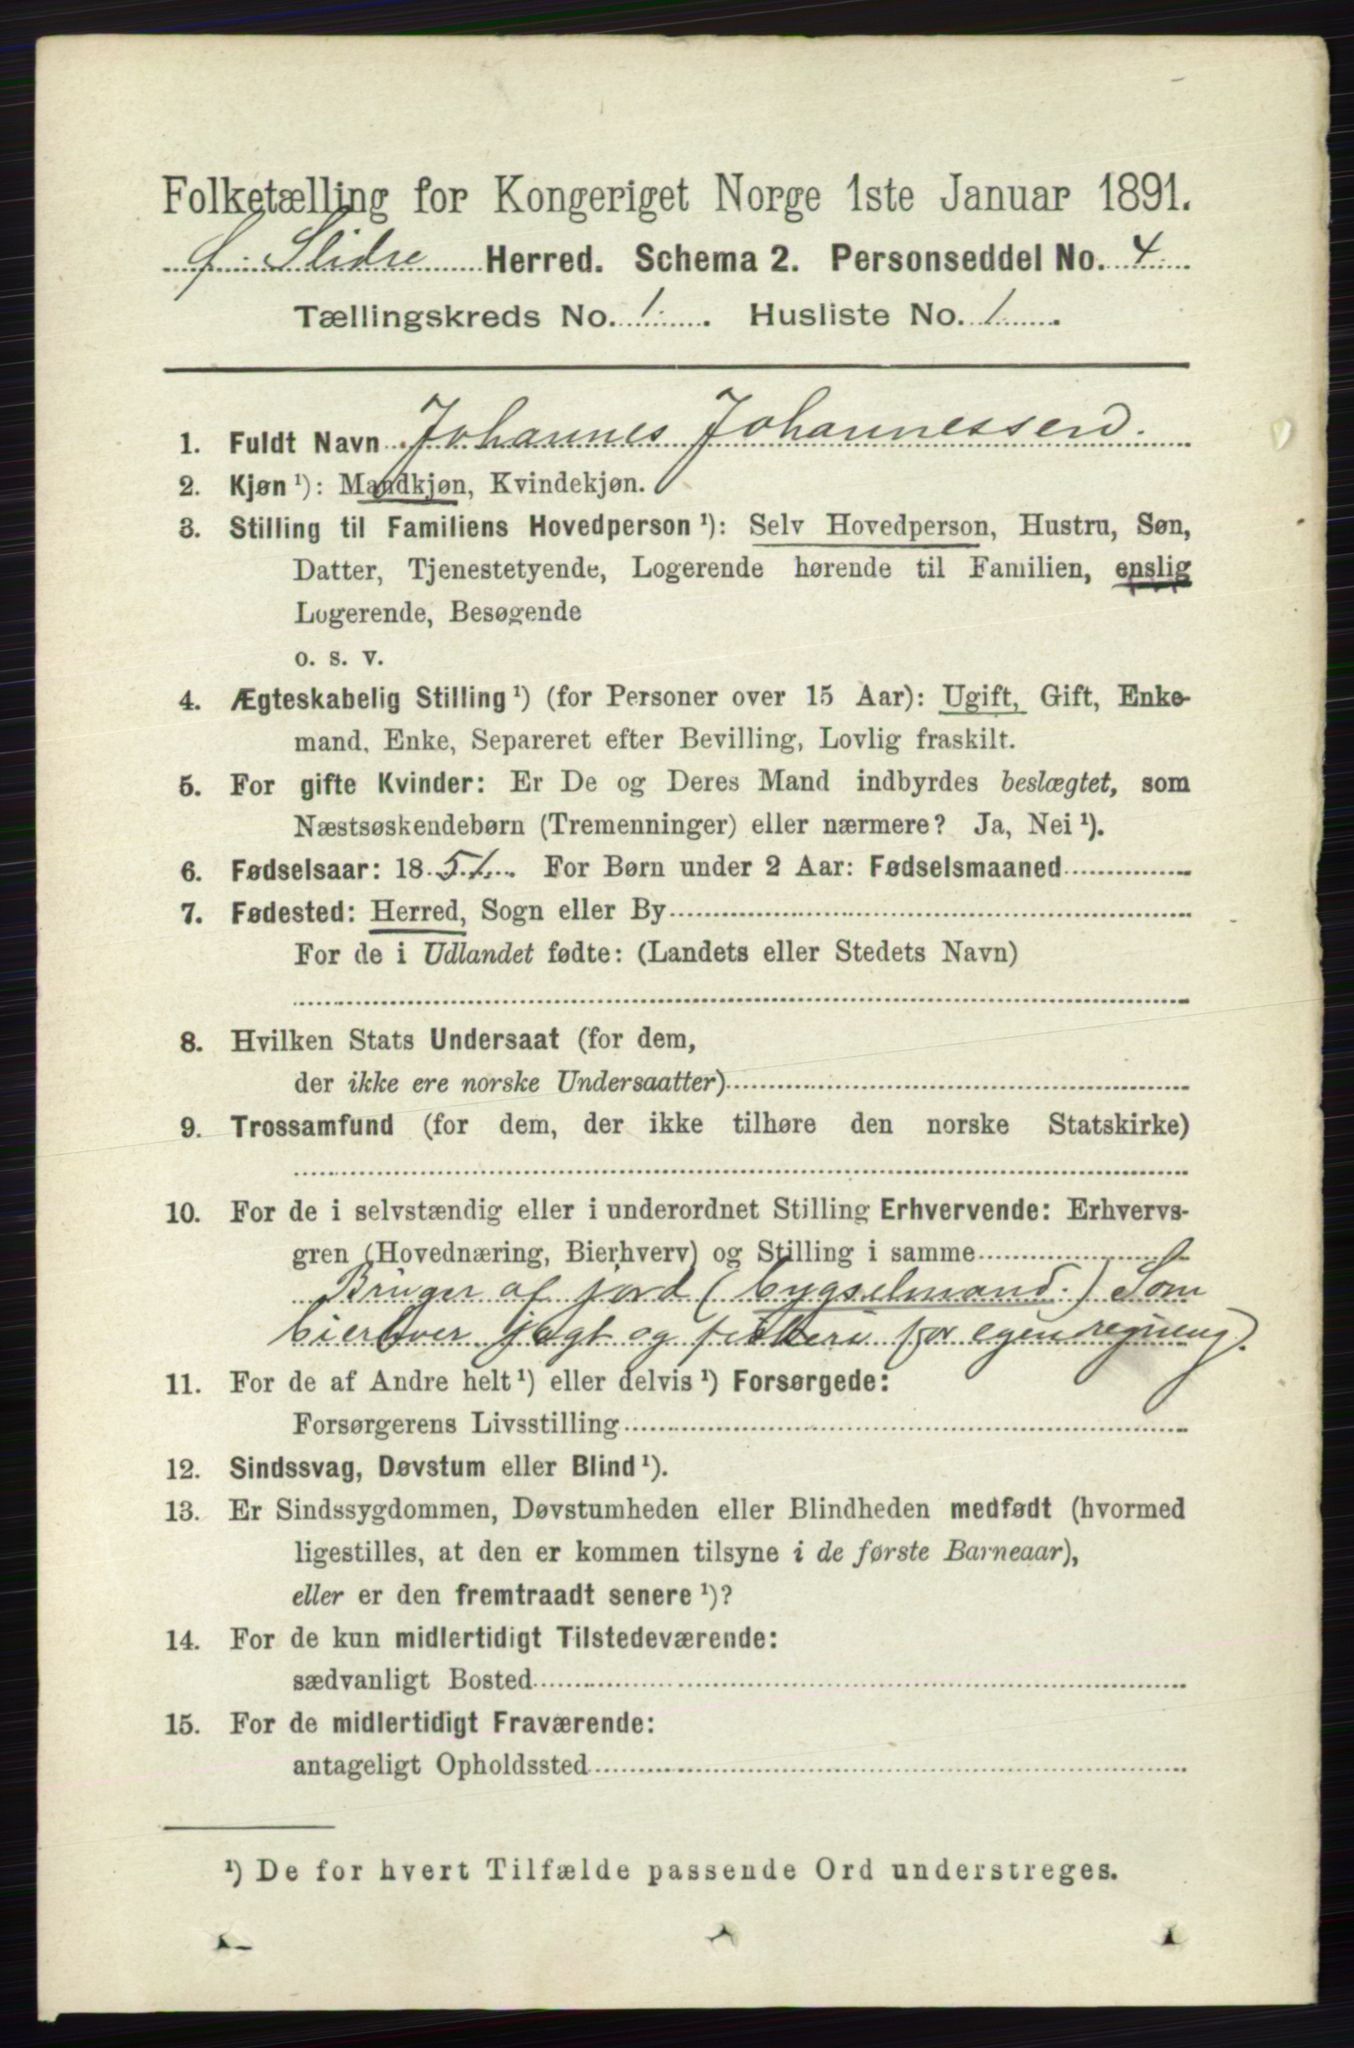 Folketælling for Kongeriget Norge 1ste Januar 1891.
Slidre Herred. Schema 2. Personseddel No. 4.
Tællingskreds No. 1. Husliste No. 1
1. Fuldt Navn Johannes Johannessen.
2. Kjøn ¹): Mandkjøn, Kvindekjøn.
3. Stilling til Familiens Hovedperson ¹): Selv Hovedperson, Hustru, Søn,
Datter, Tjenestetyende, Logerende hørende til Familien, enslig
Logerende, Besøgende
o. s. v.
4. Ægteskabelig Stilling ¹) (for Personer over 15 Aar): Ugift, Gift, Enke-
mand, Enke, Separeret efter Bevilling, Lovlig fraskilt.
5. For gifte Kvinder: Er De og Deres Mand indbyrdes beslægtet, som
Næstsøskendebørn (Tremenninger) eller nærmere? Ja, Nei ¹).
6. Fødselsaar: 1851. For Børn under 2 Aar: Fødselsmaaned
7. Fødested: Herred, Sogn eller By
For de i Udlandet fødte: (Landets eller Stedets Navn)
8. Hvilken Stats Undersaat (for dem,
der ikke ere norske Undersaatter)
9. Trossamfund (for dem, der ikke tilhøre den norske Statskirke)
10. For de i selvstændig eller i underordnet Stilling Erhvervende: Erhvervs-
gren (Hovednæring, Bierhverv) og Stilling i samme
Bruger af jord (bygselmand.) Som
bierhver jagt og fiskeri for egen regning.
11. For de af Andre helt ¹) eller delvis ¹) Forsørgede:
Forsørgerens Livsstilling
12. Sindssvag, Døvstum eller Blind ¹).
13. Er Sindssygdommen, Døvstumheden eller Blindheden medfødt (hvormed
ligestilles, at den er kommen tilsyne i de første Barneaar),
eller er den fremtraadt senere ¹)?
14. For de kun midlertidigt Tilstedeværende:
sædvanligt Bosted
15. For de midlertidigt Fraværende:
antageligt Opholdssted
¹) De for hvert Tilfælde passende Ord understreges.